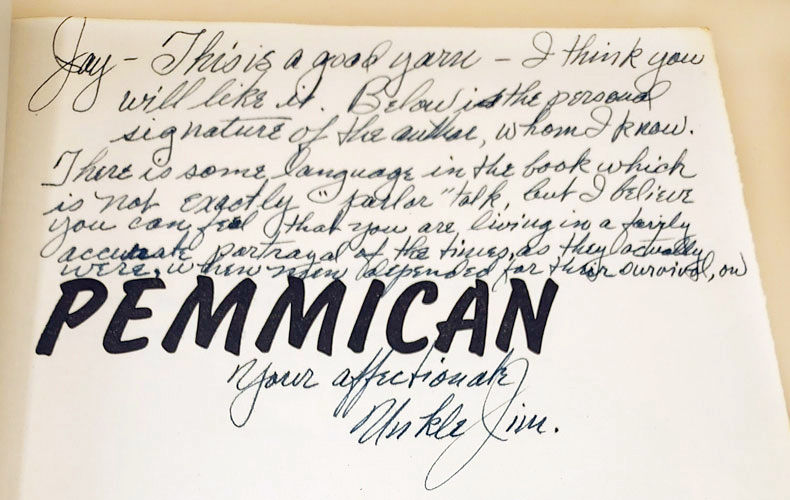 Jay - This is a good yarn - I think you
will like it. Below is the personal
signature of the author, whom I know.
There is some language in the book which
is not exactly "parlor" talk, but I believe
you can feel that you are living in a fairly
accurate portrayal of the times, as they actually
were, when men depended for their survival, on
PEMMICAN
Your affectionate
Unkle Jim.